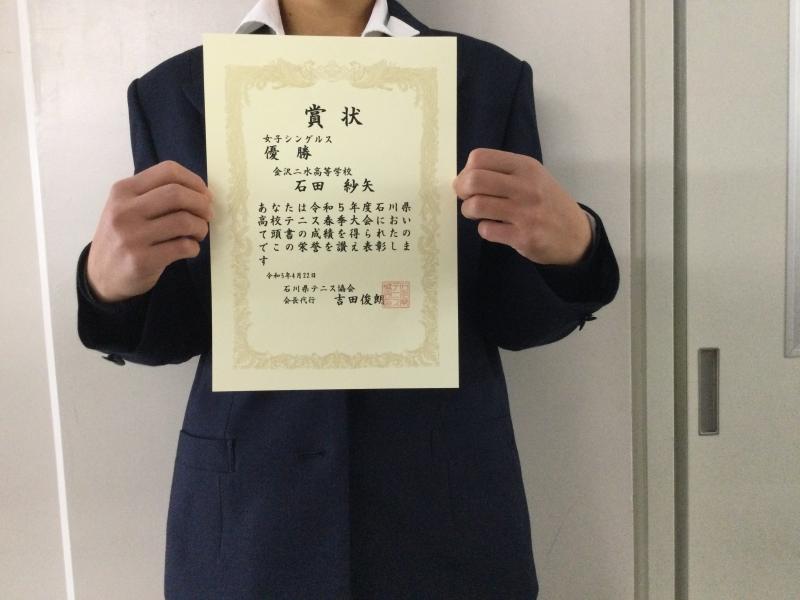 賞状
女子シングルス
優勝
金沢二水高等学校
石田 紗矢
あなたは令和5年度石川県
高校テニス春季大会におい
て頭書の成績を得られたの
でこの栄誉を讃え表彰しま
す
令和5年4月22日
石川県テニス協会
会長代行 吉田俊朗